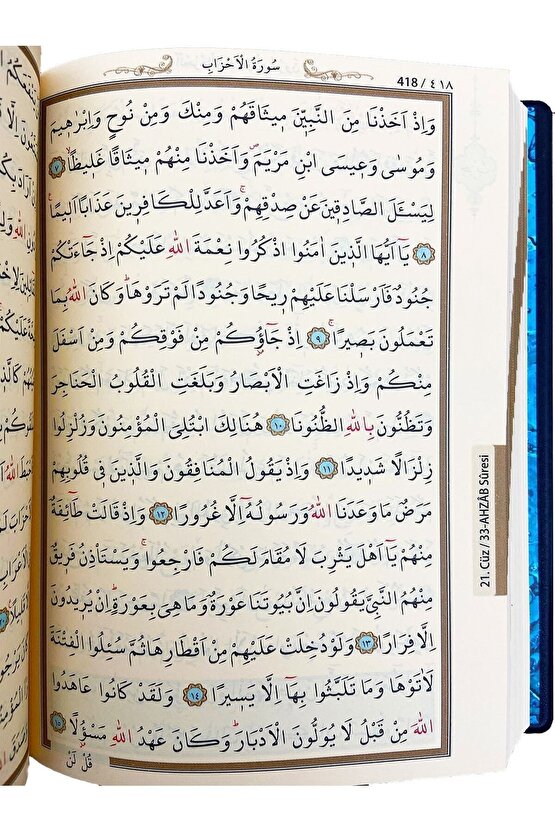 سُورَةُ الْاَحْزَابِ
418 / ٤١٨
وَاِذْ اَخَذْنَا مِنَ النَّبِيّ۪نَ م۪يثَاقَهُمْ وَمِنْكَ وَمِنْ نُوحٍ وَاِبْرٰه۪يمَ
وَمُوسٰى وَع۪يسَى ابْنِ مَرْيَمَۖ وَاَخَذْنَا مِنْهُمْ م۪يثَاقًا غَل۪يظًاۙ ٧
لِيَسْـَٔلَ الصَّادِق۪ينَ عَنْ صِدْقِهِمْۚ وَاَعَدَّ لِلْكَافِر۪ينَ عَذَابًا اَل۪يمًا۟
٨ يَٓا اَيُّهَا الَّذ۪ينَ اٰمَنُوا اذْكُرُوا نِعْمَةَ اللّٰهِ عَلَيْكُمْ اِذْ جَٓاءَتْكُمْ
جُنُودٌ فَاَرْسَلْنَا عَلَيْهِمْ ر۪يحًا وَجُنُودًا لَمْ تَرَوْهَاۜ وَكَانَ اللّٰهُ بِمَا
تَعْمَلُونَ بَص۪يرًاۚ ٩ اِذْ جَٓاؤُ۫كُمْ مِنْ فَوْقِكُمْ وَمِنْ اَسْفَلَ
مِنْكُمْ وَاِذْ زَاغَتِ الْاَبْصَارُ وَبَلَغَتِ الْقُلُوبُ الْحَنَاجِرَ
وَتَظُنُّونَ بِاللّٰهِ الظُّنُونَا ١٠ هُنَالِكَ ابْتُلِيَ الْمُؤْمِنُونَ وَزُلْزِلُوا
زِلْزَالًا شَد۪يدًا ١١ وَاِذْ يَقُولُ الْمُنَافِقُونَ وَالَّذ۪ينَ ف۪ي قُلُوبِهِمْ
مَرَضٌ مَا وَعَدَنَا اللّٰهُ وَرَسُولُهُٓ اِلَّا غُرُورًا ١٢ وَاِذْ قَالَتْ طَٓائِفَةٌ
مِنْهُمْ يَٓا اَهْلَ يَثْرِبَ لَا مُقَامَ لَكُمْ فَارْجِعُواۚ وَيَسْتَاْذِنُ فَر۪يقٌ
مِنْهُمُ النَّبِيَّ يَقُولُونَ اِنَّ بُيُوتَنَا عَوْرَةٌ وَمَا هِيَ بِعَوْرَةٍۜ اِنْ يُر۪يدُونَ
اِلَّا فِرَارًا ١٣ وَلَوْ دُخِلَتْ عَلَيْهِمْ مِنْ اَقْطَارِهَا ثُمَّ سُئِلُوا الْفِتْنَةَ
لَاٰتَوْهَا وَمَا تَلَبَّثُوا بِهَٓا اِلَّا يَس۪يرًا ١٤ وَلَقَدْ كَانُوا عَاهَدُوا
اللّٰهَ مِنْ قَبْلُ لَا يُوَلُّونَ الْاَدْبَارَۜ وَكَانَ عَهْدُ اللّٰهِ مَسْؤُ۫لًا ١٥
قُلْ لَنْ
21. Cüz / 33-AHZÂB Sûresi